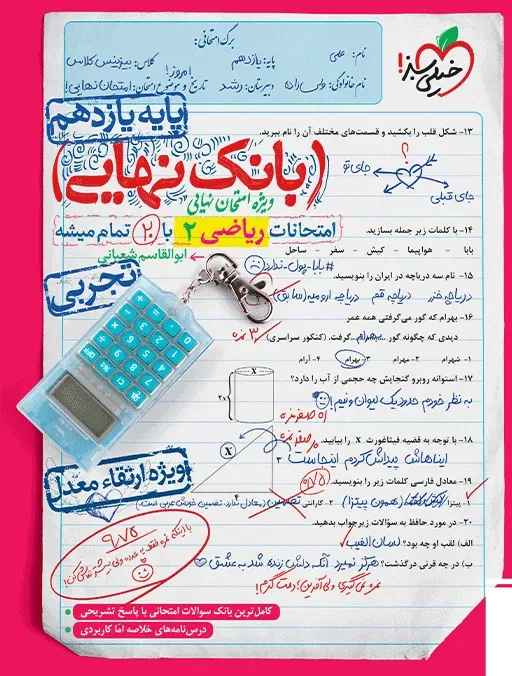 خیلی سبز!
برگ امتحانی:
نام: علی
پایه: یازدهم
کلاس: بیزینس کلاس
امروز!
نام خانوادگی:
دبیرستان: رشد
تاریخ و موضوع امتحان: امتحان نهایی!
پایه یازدهم
(بانک نهایی)
ویژه امتحان نهایی
امتحانات ریاضی ۲ با ۲۰ تمام میشه
ابوالقاسم شعبانی
تجربی
ویژه ارتقاء معدل
۱۳- شکل قلب را بکشید و قسمت‌های مختلف آن را نام ببرید.
؟
جای تو
جای قبلی
۱۴- با کلمات زیر جمله بسازید.
بابا - هواپیما - کیش - سفر - ساحل
#بابا-پول-ندارد
۱۵- نام سه دریاچه در ایران را بنویسید.
دریاچه خزر دریاچه قم دریاچه ارومیه (سابق)
۱۶- بهرام که گور می‌گرفتی همه عمر
دیدی که چگونه گور ... بهرام ... گرفت. (کنکور سراسری)
۳ نمره
۱- شهرام ۲- مهرام ۳- بهرام ۴- آرام
۱۷- استوانه روبرو گنجایش چه حجمی از آب را دارد؟
به نظر خودم حدود یک لیوان و نیم!
X
2X
۱۸- با توجه به قضیه فیثاغورث X را بیابید.
ایناهاش پیداش کردم اینجاست
X
۳
۴
۱۹- معادل فارسی کلمات زیر را بنویسید.
۰/۷۵
۱- پیتزا (همون پیتزا) ۲- گارانتی تضمین (معادل ندارد، تضمین خودش عربی است.)
۲۰- در مورد حافظ به سؤالات زیر جواب بدهید.
الف) لقب او چه بود؟ لسان الغیب
ب) در چه قرنی درگذشت؟ هرگز نمیرد آنکه دلش زنده شد به عشق
نمره نمی‌گیری ولی آفرین! دمت گرم!
۹/۷۵
کامل‌ترین بانک سوالات امتحانی با پاسخ تشریحی
درس‌نامه‌های خلاصه اما کاربردی